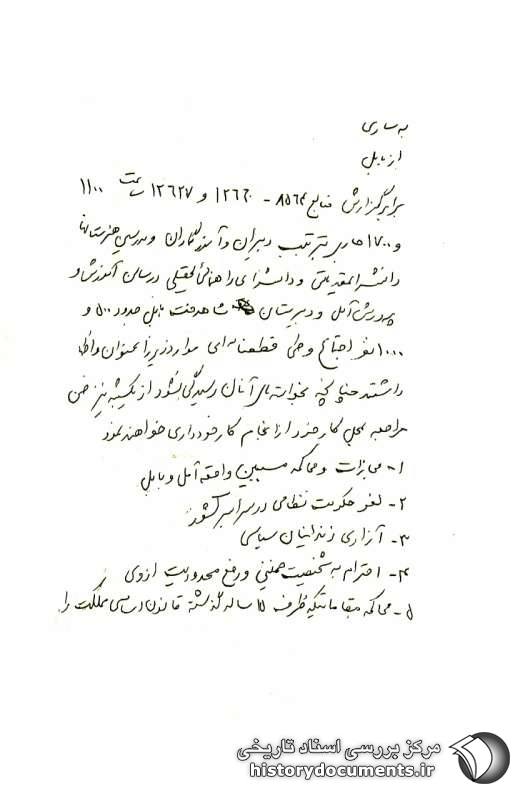 به ساری
از بابل
برابر گزارش منابع ۸۵۶۴ - ۱۲۶۶۰ و ۱۲۶۲۷ ساعت ۱۱۰۰
و ۱۷۰۰ جاری بترتیب دبیران و آموزگاران و مدرسین هنرستانها
دانشسرای مقدماتی و دانشسرای راهنمائی تحصیلی در سالن آموزش و
پرورش آمل و دبیرستان شاهدخت بابل حدود ۵۰۰ و
۱۰۰۰ نفر اجتماع و طی قطعنامه‌ای موارد زیر را عنوان و اظهار
داشتند چنانچه بخواسته‌های آنان رسیدگی نشود از یکشنبه نیز ضمن
مراجعه بمحل کار خود از انجام کار خودداری خواهند نمود
۱- مجازات و محاکمه مسببین واقعه آمل و بابل
۲- لغو حکومت نظامی در سراسر کشور
۳- آزادی زندانیان سیاسی
۴- احترام به شخصیت خمینی و رفع محدودیت از وی
۵- محاکمه مقاماتیکه ظرف ۱۵ ساله گذشته قانون اساسی مملکت را
مرکز بررسی اسناد تاریخی
historydocuments.ir